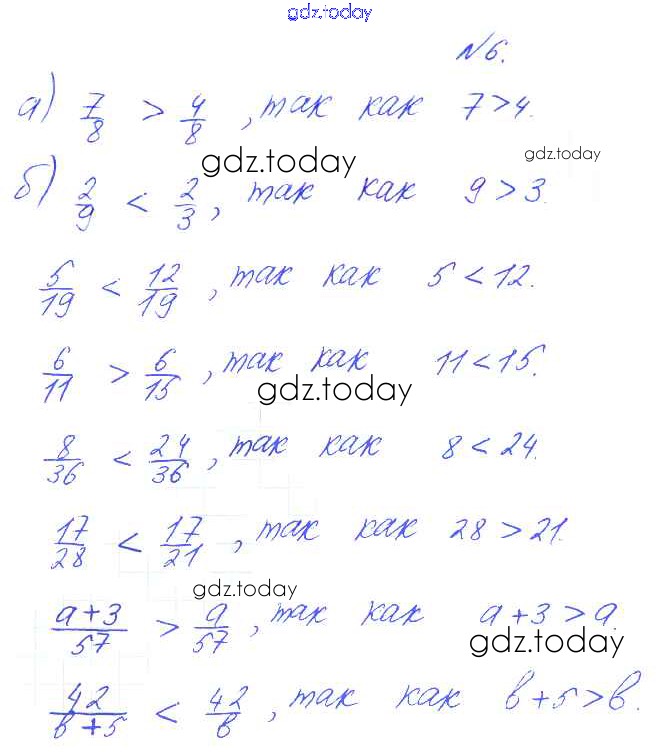 gdz.today
№6.
а) 7/8 > 4/8, так как 7>4.
gdz.today
gdz.today
б) 2/9 < 2/3, так как 9>3.
5/19 < 12/19, так как 5<12.
6/11 > 6/15, так как 11<15.
gdz.today
8/36 < 24/36, так как 8<24.
17/28 < 17/21, так как 28>21.
gdz.today
a+3/57 > a/57, так как a+3>a.
gdz.today
42/в+5 < 42/в, так как в+5>в.